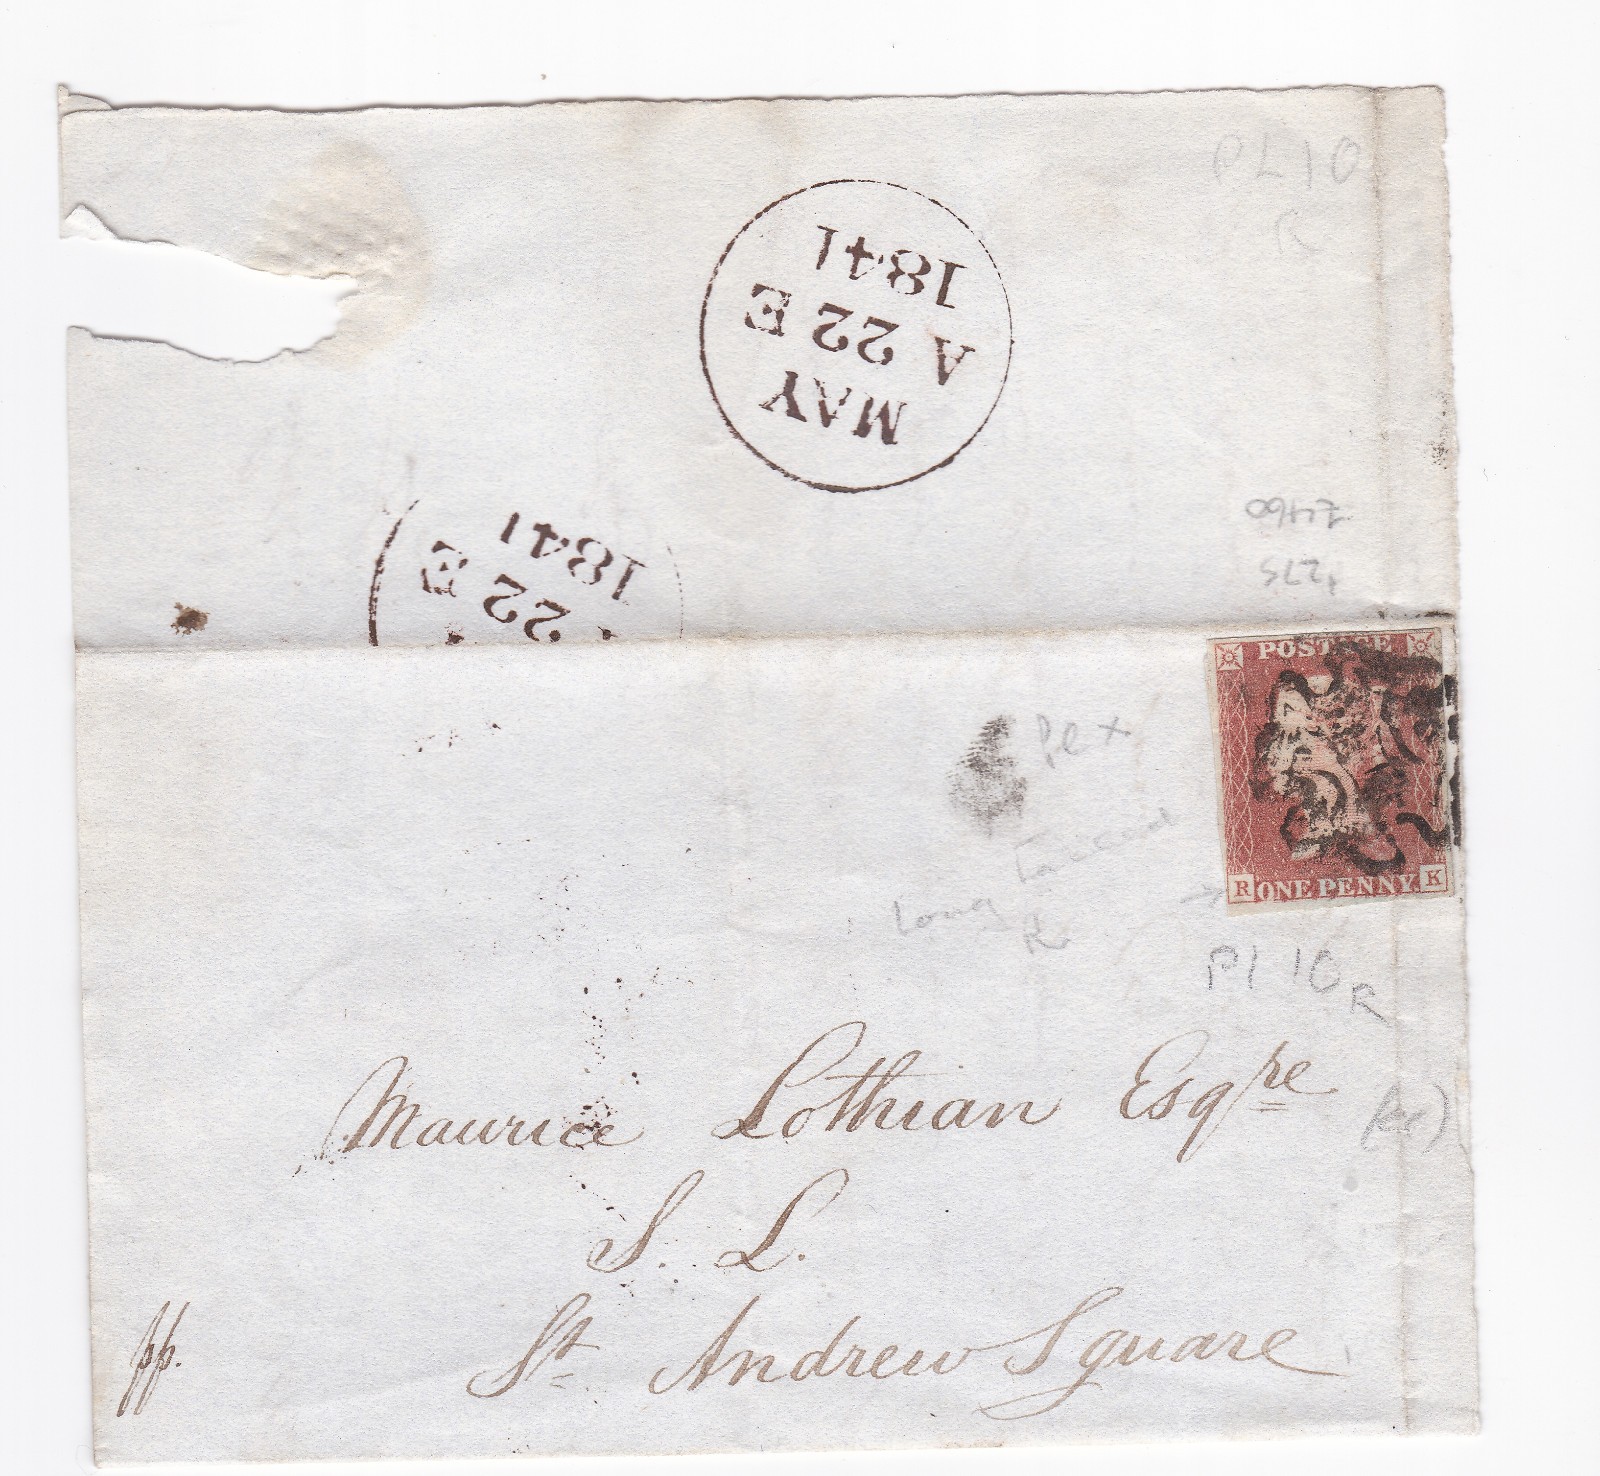 PL 10
R
1841
A 22 E
MAY
£460
275
1841
22 E
POSTAGE
R ONE PENNY. K
Pl
Long Tailed
R
Pl 10
R
Maurice Lothian Esqre
S. L.
St Andrew Square
pp.